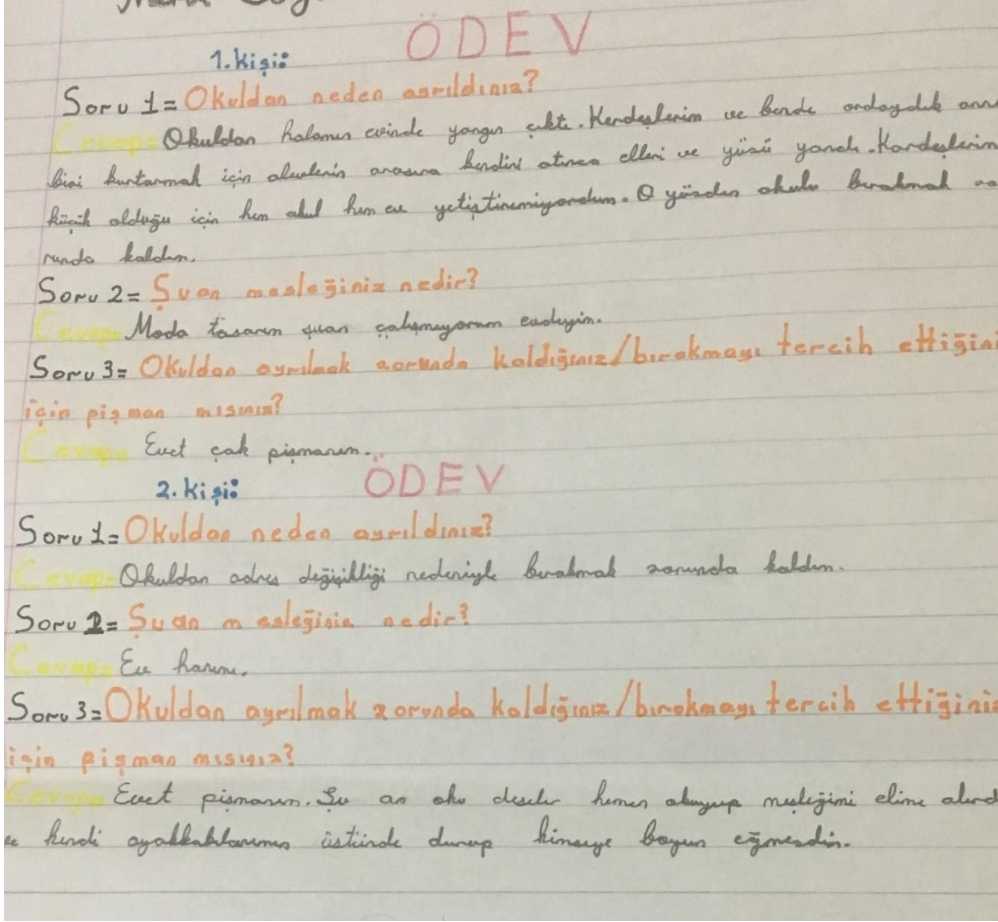 ÖDEV
1.kişi:
Soru 1= Okuldan neden ayrıldınız?
Cevap= Okuldan halamın evinde yangın çıktı. Kardeşlerim ve bende ordaydık ann
bizi kurtarmak için alevlerin arasına kendini atınca elleri ve yüzü yandı. Kardeşlerim
küçük olduğu için hem okul hem ev yetiştiremiyordum. O yüzden okulu bırakmak zo
runda kaldım.
Soru 2= Şuan mesleğiniz nedir?
Cevap= Moda tasarım şuan çalışmıyorum evdeyim.
Soru 3= Okuldan ayrılmak zorunda kaldığınız/bırakmayı tercih ettiğini
için pişman mısınız?
Cevap= Evet çok pişmanım.
2. kişi: ÖDEV
Soru 1= Okuldan neden ayrıldınız?
Cevap= Okuldan adres değişikliği nedeniyle bırakmak zorunda kaldım.
Soru 2= Şuan mesleğiniz nedir?
Cevap= Ev hanımı.
Soru 3= Okuldan ayrılmak zorunda kaldığınız/bırakmayı tercih ettiğiniz
için pişman mısınız?
Cevap= Evet pişmanım. Şu an oku deseler hemen okuyup mesleğimi elime alırd
ve kendi ayakkabılarımın üstünde durup kimseye boyun eğmezdim.